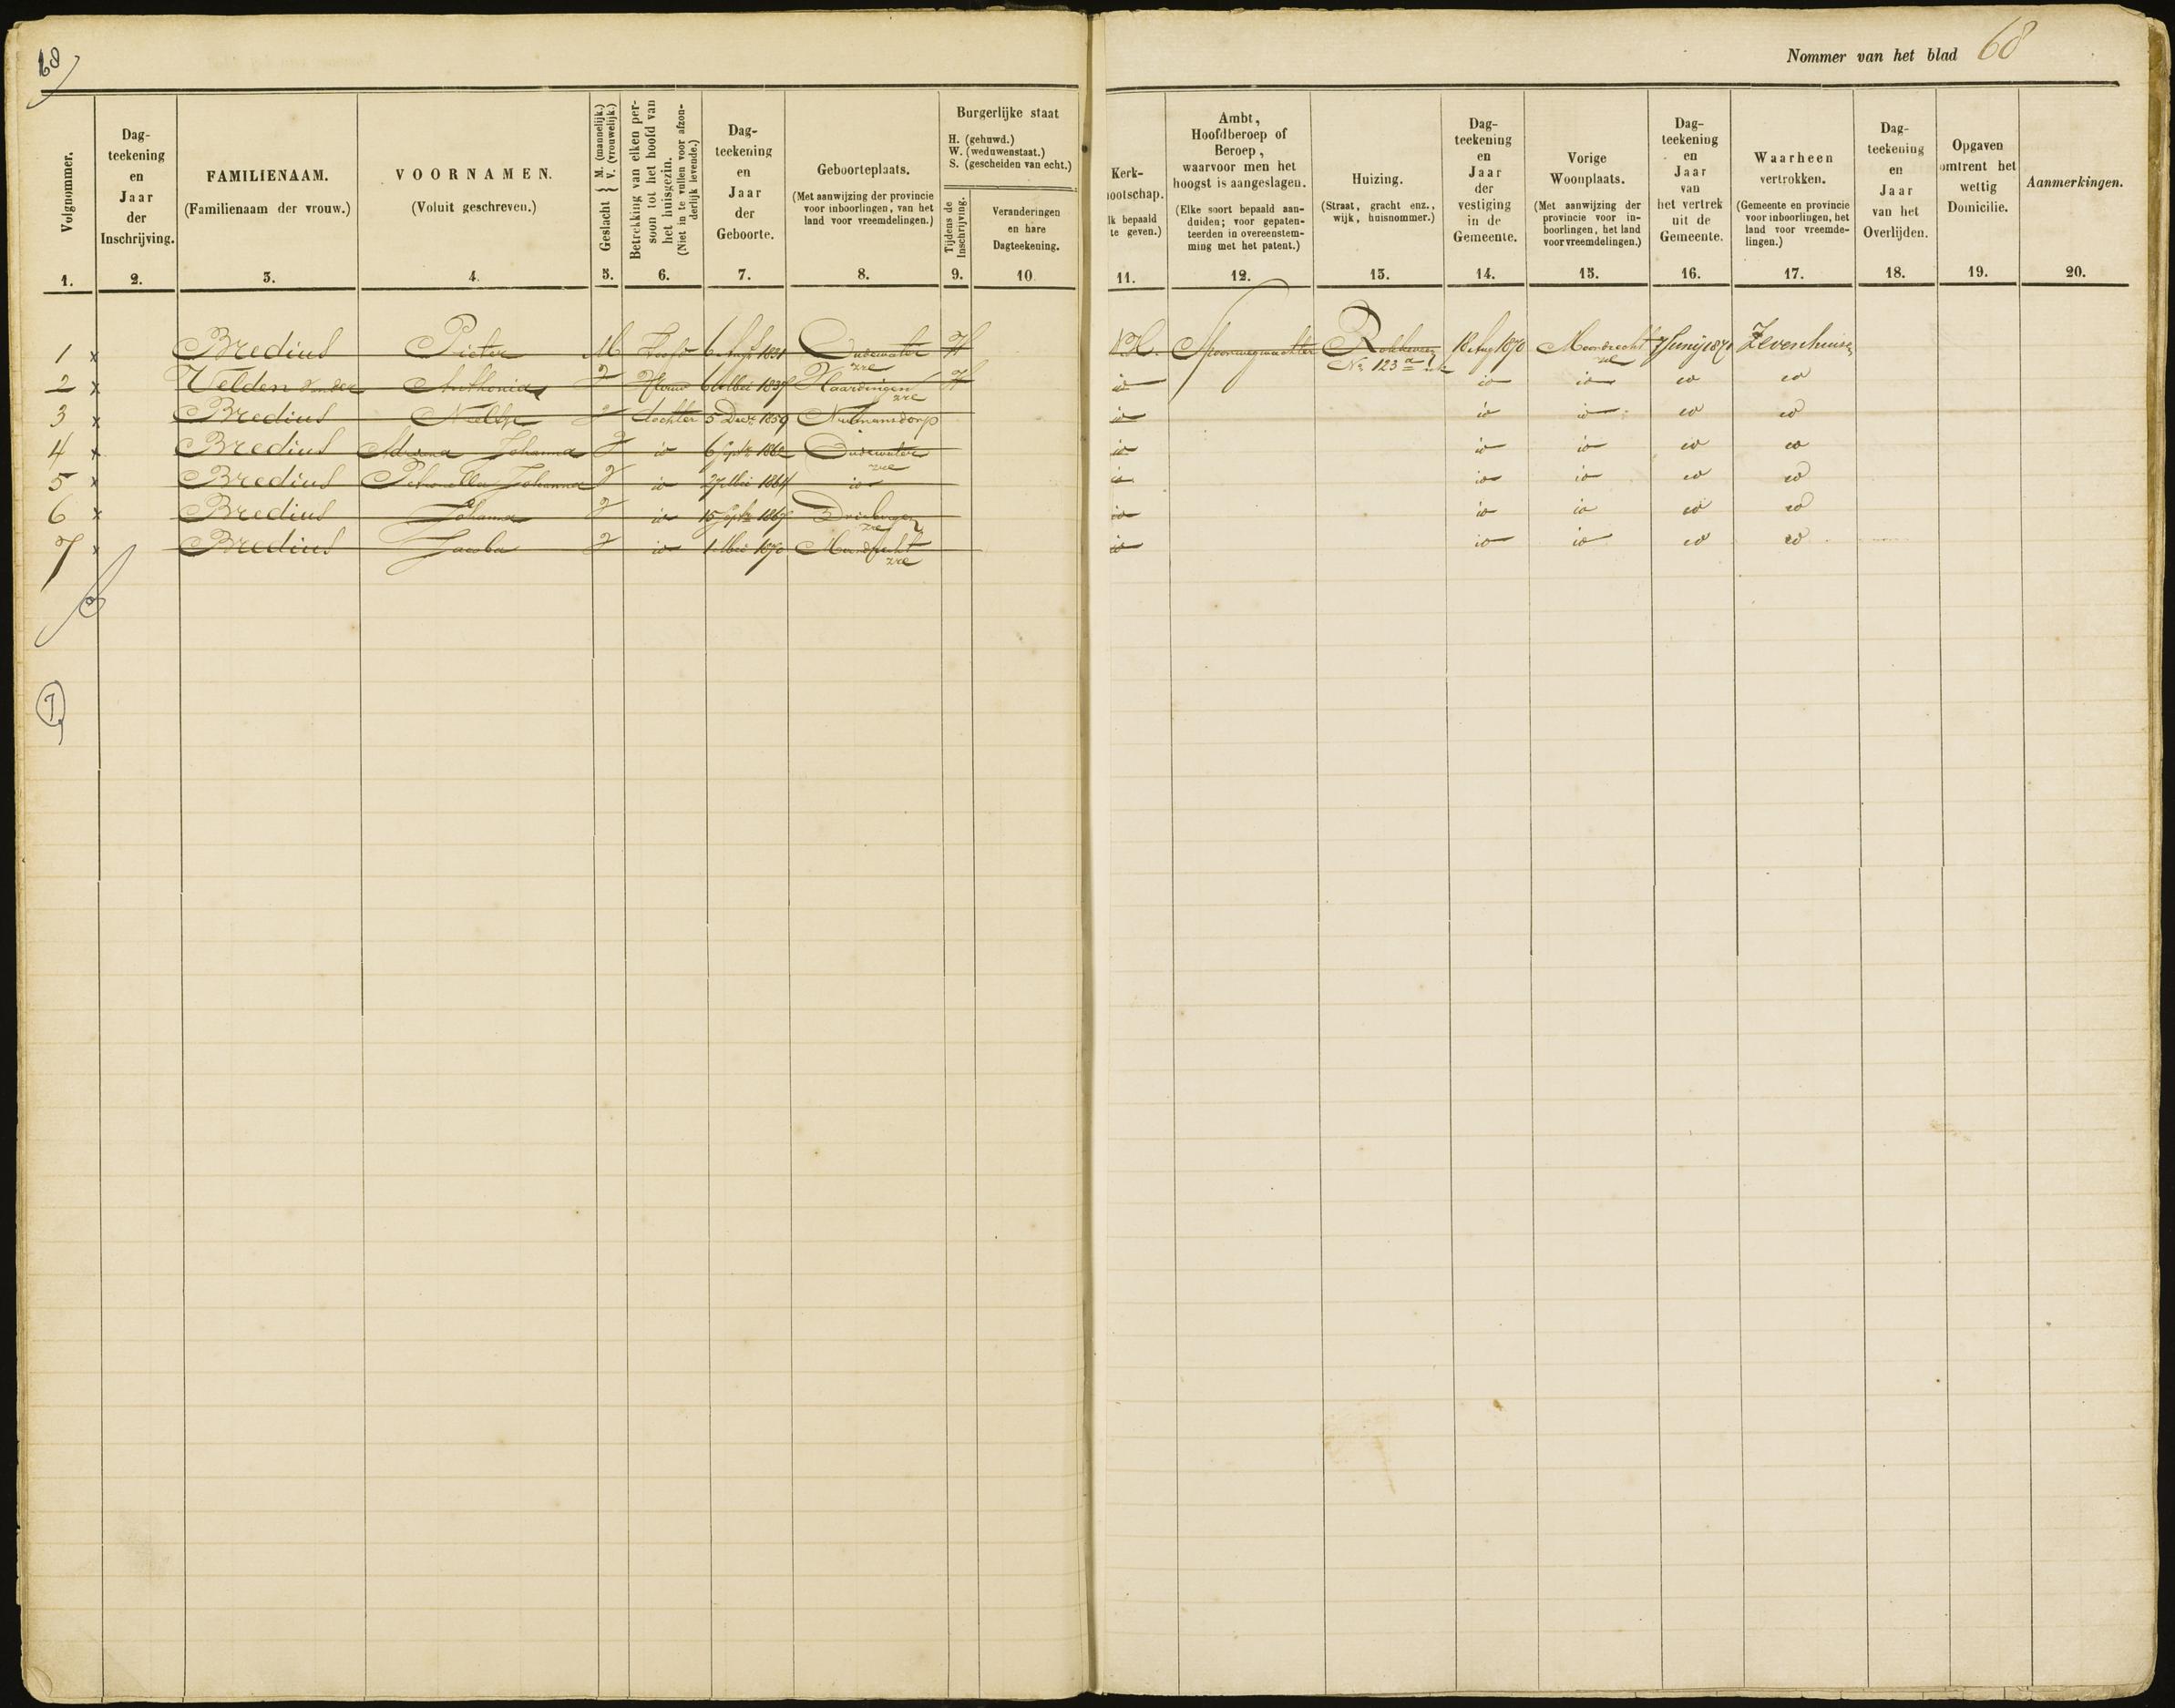 68
Nommer van het blad 68
Volgnommer.
Dag-
teekening
en
Jaar
der
Inschrijving.
FAMILIENAAM.
(Familienaam der vrouw.)
VOORNAMEN.
(Voluit geschreven.)
Geslacht { M. (mannelijk.) V. (vrouwelijk.)
Betrekking van elken per-
soon tot het hoofd van
het huisgezin.
(Niet in te vullen voor afzon-
derlijk levende.)
Dag-
teekening
en
Jaar
der
Geboorte.
Geboorteplaats.
(Met aanwijzing der provincie
voor inboorlingen, van het
land voor vreemdelingen.)
Burgerlijke staat
H. (gehuwd.)
W. (weduwenstaat.)
S. (gescheiden van echt.)
Tijdens de
Inschrijving.
Veranderingen
en hare
Dagteekening.
Kerk-
ootschap.
lk bepaald
te geven.)
Ambt,
Hoofdberoep of
Beroep,
waarvoor men het
hoogst is aangeslagen.
(Elke soort bepaald aan-
duiden; voor gepaten-
teerden in overeenstem-
ming met het patent.)
Huizing.
(Straat, gracht enz.,
wijk, huisnommer.)
Dag-
teekening
en
Jaar
der
vestiging
in de
Gemeente.
Vorige
Woonplaats.
(Met aanwijzing der
provincie voor in-
boorlingen, het land
voor vreemdelingen.)
Dag-
teekening
en
Jaar
van
het vertrek
uit de
Gemeente.
Waarheen
vertrokken.
(Gemeente en provincie
voor inboorlingen, het
land voor vreemde-
lingen.)
Dag-
teekening
en
Jaar
van het
Overlijden.
Opgaven
omtrent het
wettig
Domicilie.
Aanmerkingen.
1. 2. 3. 4. 5. 6. 7. 8. 9. 10. 11. 12. 13. 14. 15. 16. 17. 18. 19. 20.
1 x Bredius Pieter M Hoofd 1831 Oudewater zre H NH. Spoorwegwachter Rokkeveen No 123 a 10 Aug 1870 Moordrecht zre 7 Junij 1871 Zevenhuizen
2 x Velden van der Anthonia V Vrouw 6 Mei 1837 Vlaardingen zre H io io io io io
3 x Bredius Neeltje V dochter 5 Decr 1859 Numansdorp io io io io io
4 x Bredius Adriana Johanna V io 6 Septr 1862 Oudewater zre io io io io io
5 x Bredius Petronella Johanna V io 27 Mei 1864 io io io io io io
6 x Bredius Johanna V io 15 Septr 1867 Driebergen zre io io io io io
7 x Bredius Jacoba V io 1 Mei 1870 Moordrecht zre io io io io io
7